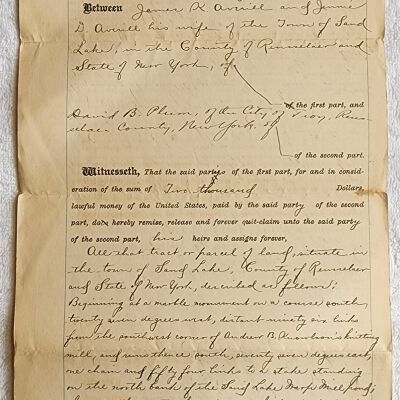 Between James K Averill and Jennie
D. Averill his wife of the Town of Sand
Lake, in the County of Rensselaer and
State of New York, of
of the first part, and
David B. Plum, of the City of Troy, Rens-
selaer County, New York, of
of the second part.
Witnesseth, That the said parties of the first part, for and in consid-
eration of the sum of Two thousand Dollars,
lawful money of the United States, paid by the said party of the second
part, do hereby remise, release and forever quit-claim unto the said party
of the second part, his heirs and assigns forever,
All that tract or parcel of land, situate in
the town of Sand Lake, County of Rensselaer
and State of New York, described as follows;
Beginning at a marble monument on a course south,
twenty seven degrees west, distant ninety six links
from the southwest corner of Andrew B. Knowlson's knitting
mill, and runs thence south, seventy seven degrees east,
one chain and fifty four links to a stake standing
on the north bank of the Sand Lake Warp Mill pond;